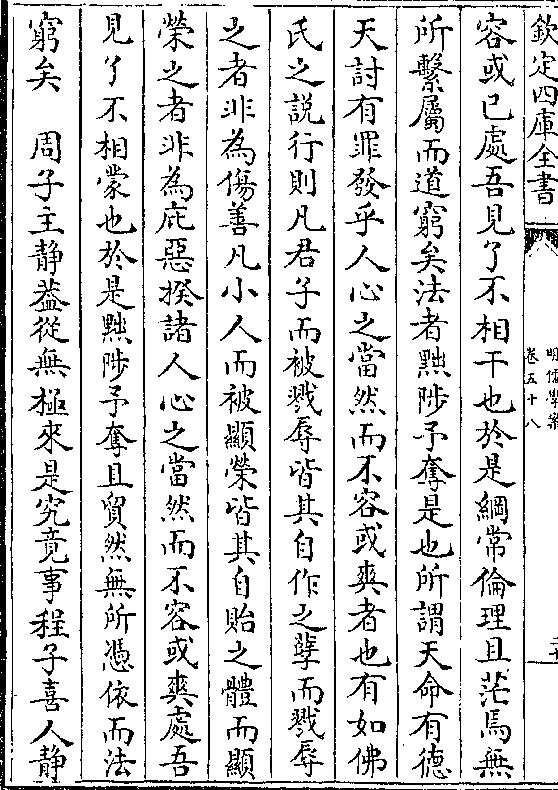 欽定四庫全書
明儒學案
卷五十八
容或已處吾見了不相干也於是綱常倫理且茫焉無
所繫屬而道窮矣法者黜陟予奪是也所謂天命有德
天討有罪發乎人心之當然而不容或爽者也有如佛
氏之説行則凡君子而被戮辱皆其自作之孽而戮辱
之者非為傷善凡小人而被顯榮皆其自貽之體而顯
榮之者非為庇惡揆諸人心之當然而不容或爽處吾
見了不相蒙也於是黜陟予奪且貿然無所憑依而法
窮矣　周子主静葢從無極來是究竟事程子喜人静